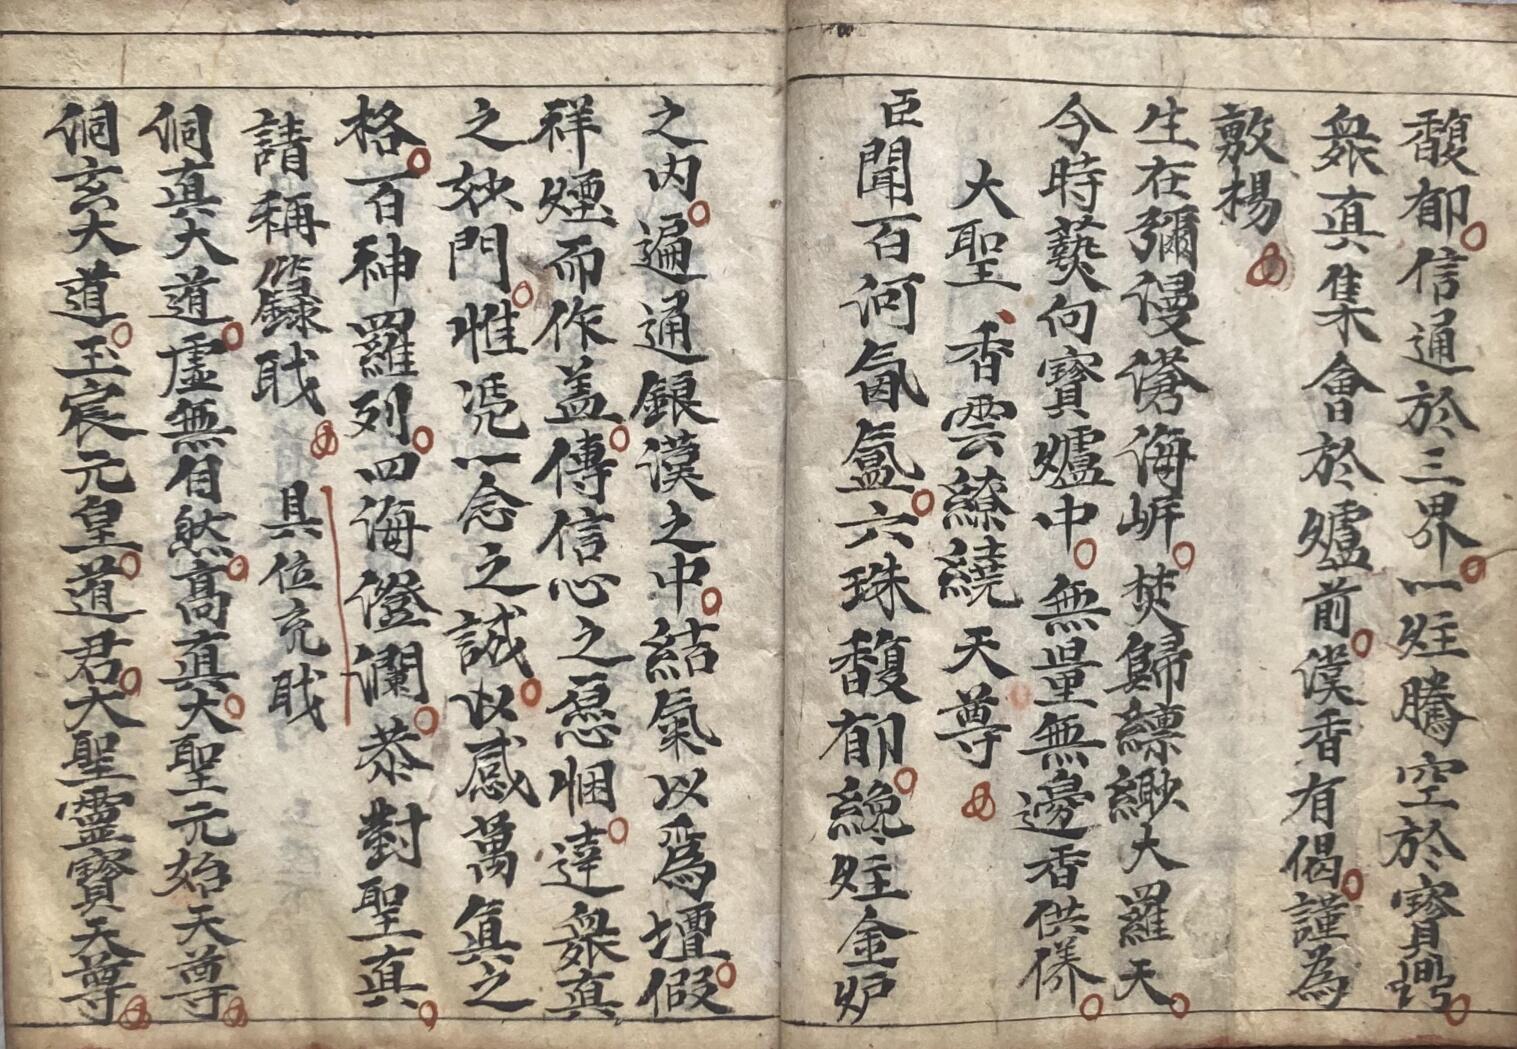 馥郁信通於三界一炷騰空於寶鼎
衆真集會於爐前漢香有偈謹為
敷楊
生在彌漫滄海岍焚歸縹緲大羅天
今時爇向寶爐中無量無邊香供養
大聖香雲繚繞天尊
臣聞百河氤氳六珠馥郁纔炷金炉
之内遍通銀漢之中結氣以爲壇假
祥煙而作盖傳信心之悃達衆真
之妙門惟凴一念之誠以感萬真之
格百神羅列四海澄瀾恭對聖真
請稱籙职具位充职
侗真大道虛無自然髙真大聖元始天尊
侗玄大道玉宸元皇道君大聖靈寶天尊